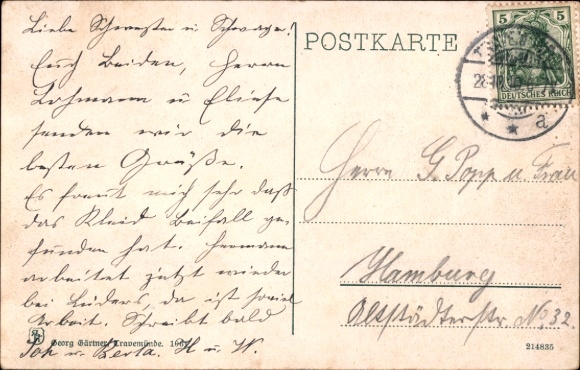 Liebe Schwester u Schwager!
Euch Beiden, Herrn
Lohmann u Eliese
senden wir die
besten Grüße.
Es freut mich sehr daß
das Kleid Beifall ge-
funden hat. Hermann
arbeitet jetzt wieder
bei Lüders, da ist soviel
Arbeit. Schreibt bald
Joh u. Berta. H u. W.
Georg Gärtner, Travemünde.
POSTKARTE
5 5
DEUTSCHES REICH
28
* * a
Herrn G. Popp u. Frau
Hamburg
Altstädterstr No. 32.
214835